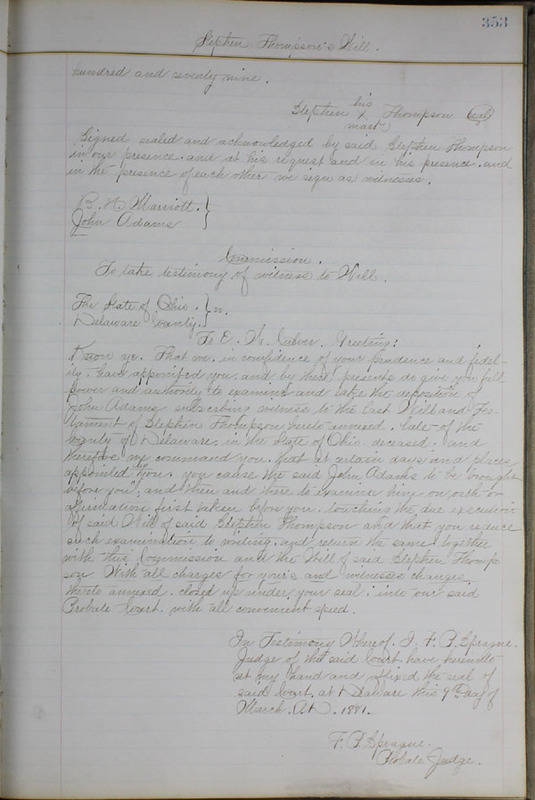 353
Stephen Thompson's Will.
hundred and seventy nine.
his
Stephen X Thompson (seal)
mark
Signed sealed and acknowledged by said Stephen Thompson
in our presence. and at his request and in his presence. and
in the presence of each other we sign as witnesses.
B. W. Marriott.
John Adams
Commission.
To take testimony of witness to Will.
The State of Ohio.
Delaware County.
To E. K. Culver. Greeting:
Know ye. That we, in confidence of your prudence and fidel-
ity. have appointed you. and by these presents do give you full
power and authority to examine and take the deposition of
John Adams subscribing witness to the Last Will and Tes-
tament of Stephen Thompson hereto annexed. late of the
County of Delaware, in the State of Ohio. deceased. and
therefore we command you, that at certain days and places
appointed "you" you cause the said John Adams to be "brought
before you", and then and there to examine him on oath or
affirmation first taken before you. touching the due execution
of said Will of said Stephen Thompson and that you reduce
such examination to writing. and return the same together
with this Commission and the Will of said Stephen Thomp
son With all charges for your's and witnesses charges
thereto annexed. closed up under your seal. into our said
Probate Court. with all convenient speed.
In Testimony Whereof. I. F. P. Sprague.
Judge of the said Court have hereunto
set my hand and affixed the seal of
said Court, at Delaware this 9th day of
March. A.D. 1881.
F. P. Sprague.
Probate Judge.